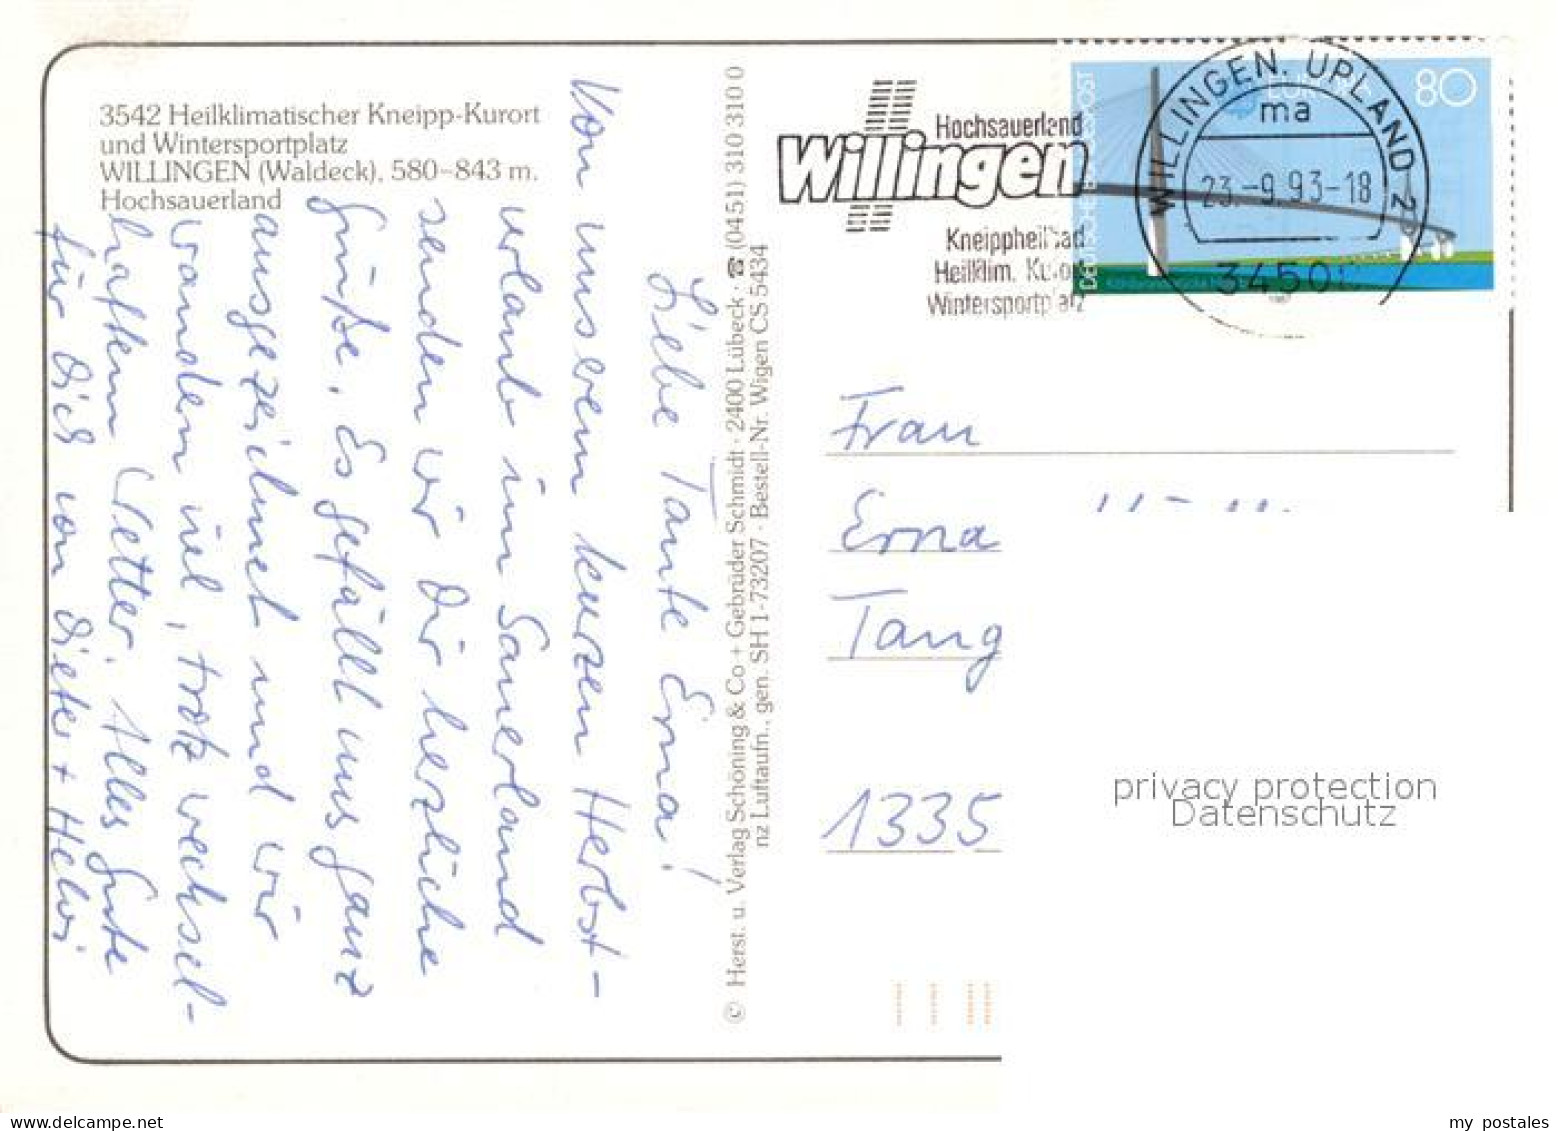 3542 Heilklimatischer Kneipp-Kurort
und Wintersportplatz
WILLINGEN (Waldeck), 580–843 m.
Hochsauerland
Liebe Tante Erna!
Von unserem kurzen Herbst-
urlaub im Sauerland
senden wir Dir herzliche
Grüße. Es gefällt uns ganz
ausgezeichnet und wir
wandern viel, trotz wechsel-
haftem Wetter. Alles Gute
für Dich von Dieter + Helvi
© Herst. u. Verlag Schöning & Co + Gebrüder Schmidt · 2400 Lübeck · ☎ (0451) 310 310 0
nz Luftaufn., gen. SH 1-73207 · Bestell-Nr. Wigen CS 5434
Hochsauerland
Willingen
Kneippheilbad
Heilklim. Kurort
Wintersportplatz
DEUTSCHE BUNDESPOST
80
WILLINGEN, UPLAND 2
ma
23.-9.93-18
3450
Frau
Erna
Tang
1335
privacy protection
Datenschutz
my postales